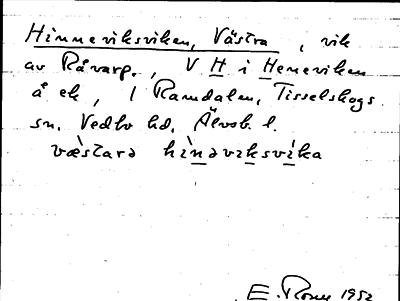 Hinneviksviken, Västra, vik
av Råvarp., V H i Heneviken
å ek, I Ramdalen, Tisselskogs
sn. Vedbo hd. Älvsb. l.
væ̀stara hìnəviksvìka
E. 1952